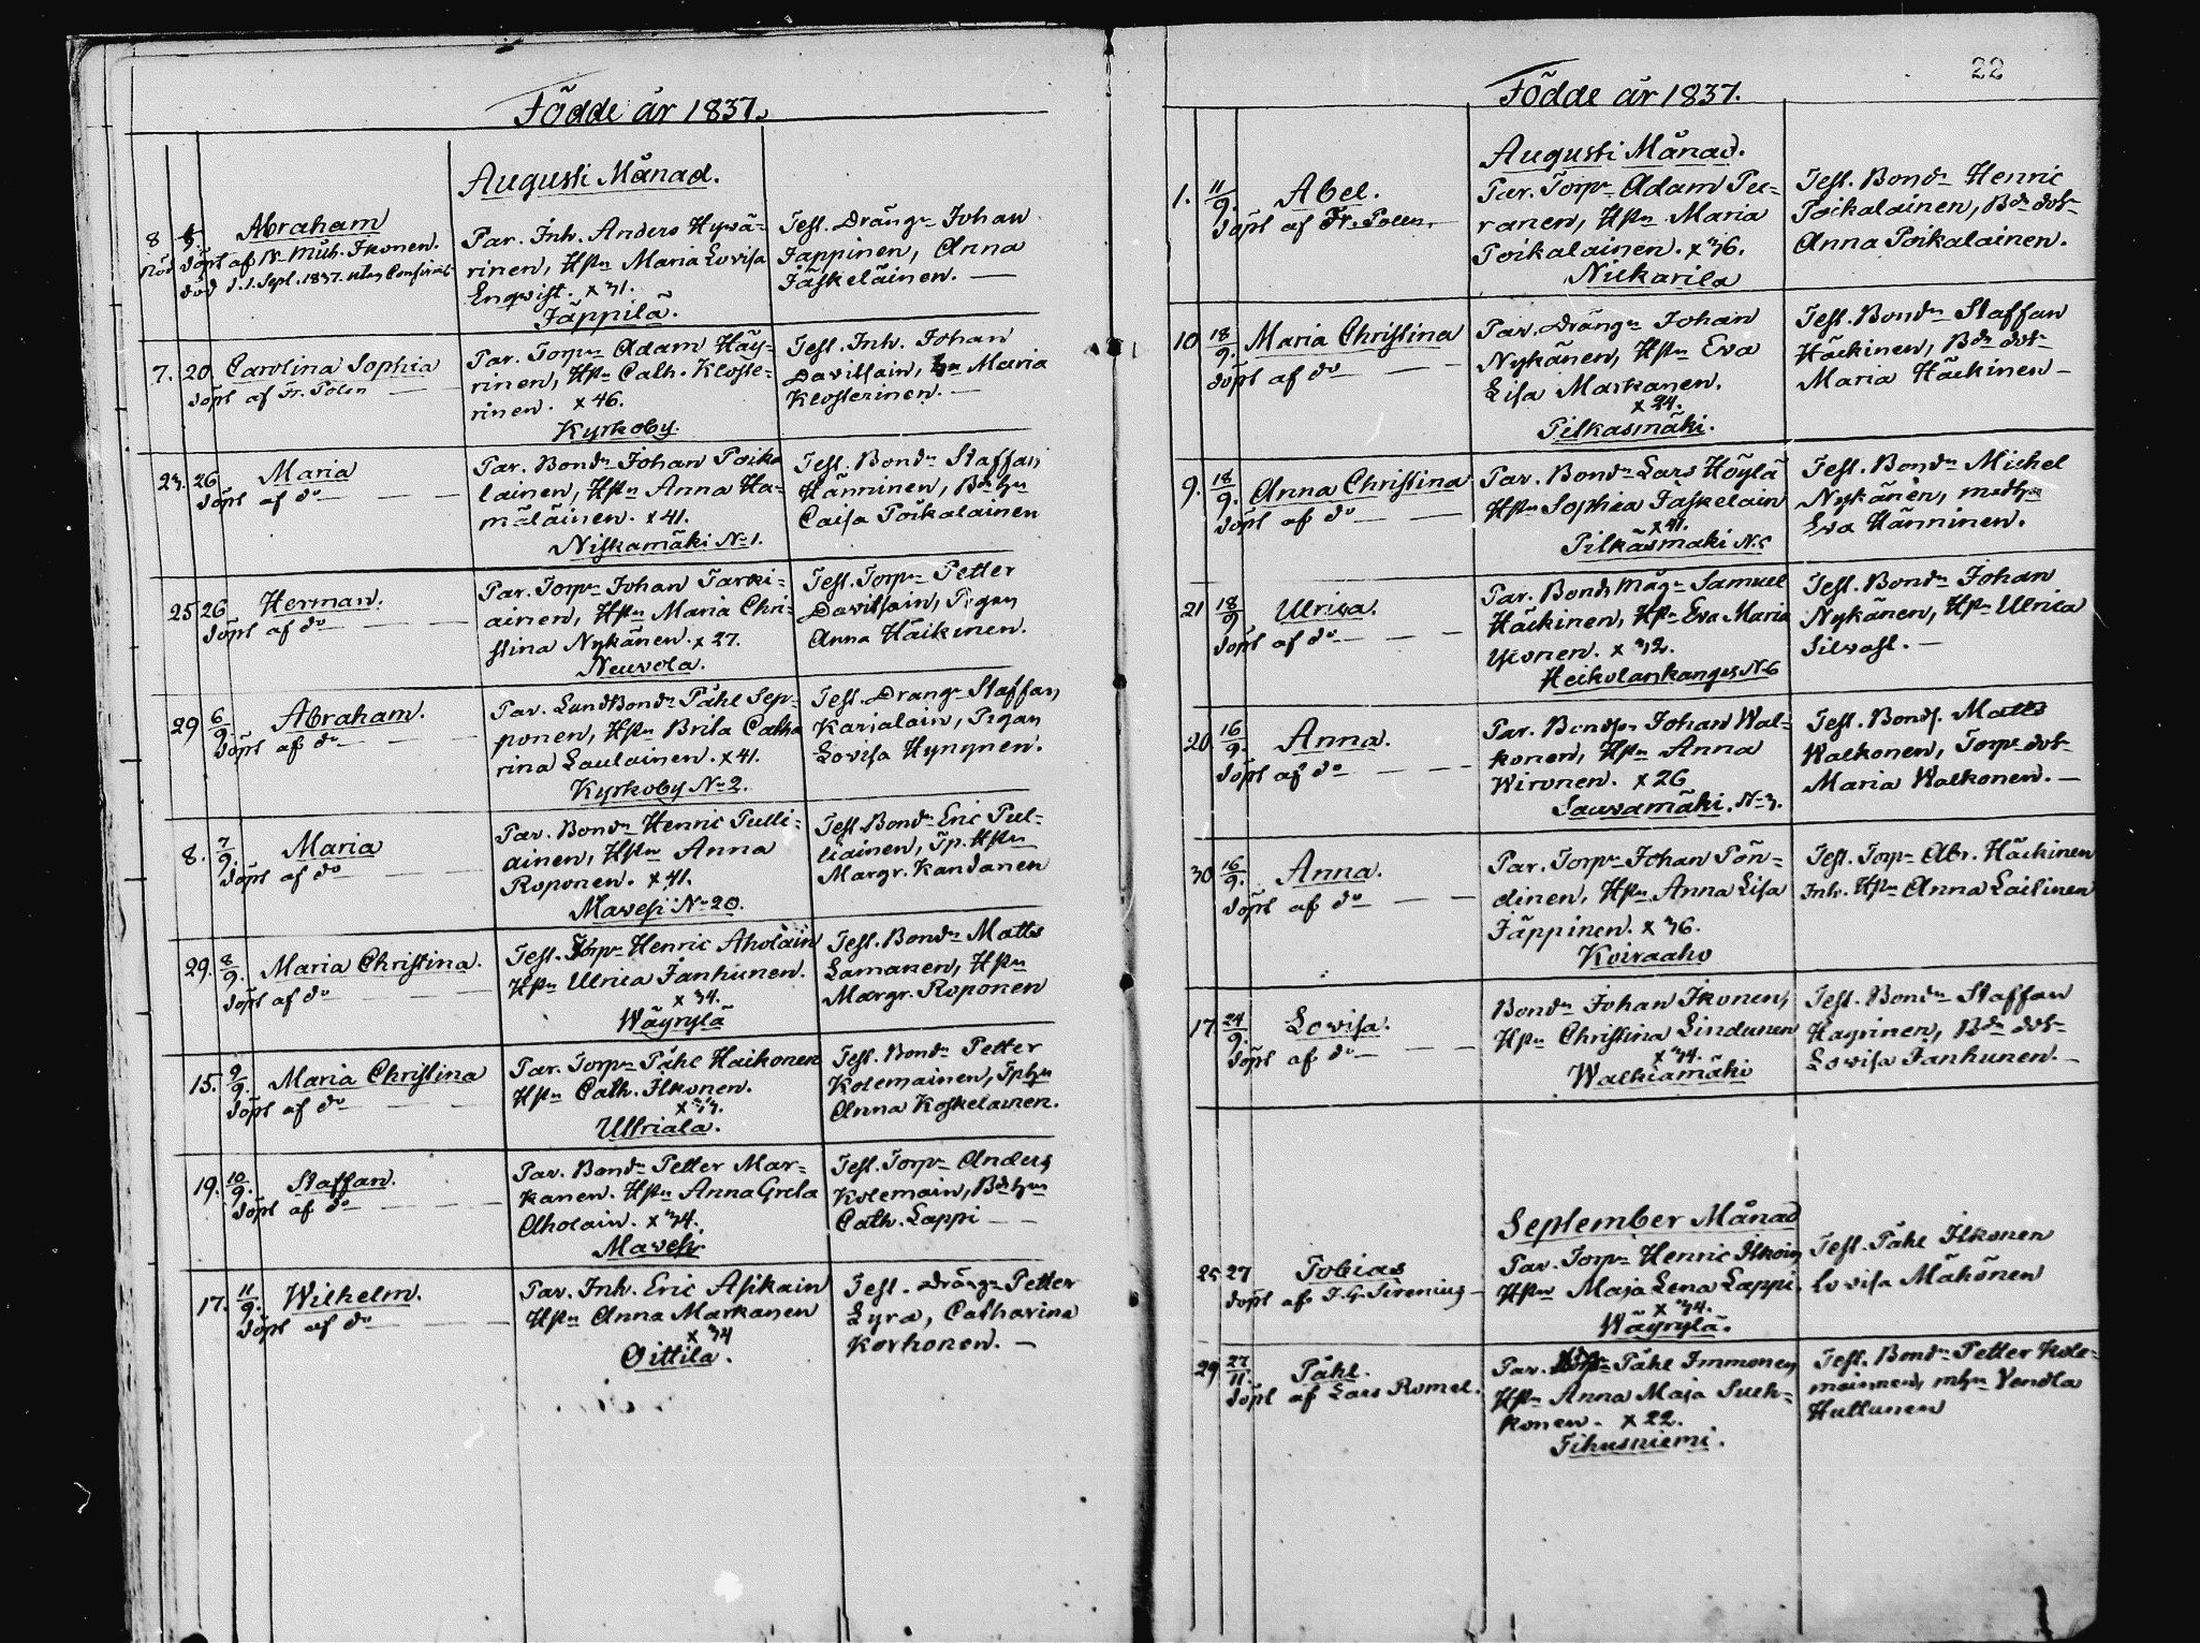 Födde år 1837.
Augusti Månad.
8 Abraham
döpt af Nr Mich. Ikonen.
död d. 1. Sept. 1837. utan Confirmat
Par. Inh. Anders Hyvä=
rinen, Hstn Maria Lovisa
Enqvist. x 31.
Jäppilä.
Test. Drängn Johan
Jappinen, Anna
Jäskeläinen. —
7. 20. Carolina Sophia
döpt af Fr. Polen —
Par. Torpn Adam Häy=
rinen, Hstn Cath. Kloste=
rinen. x 46.
Kyrkoby.
Test. Inh. Johan
Davitsain, hn Maria
Klosterinen. —
23. 26 Maria
döpt af do — — —
Par. Bondn Johan Poika
lainen, Hstn Anna Ha=
mäläinen. x 41.
Niskamäki No 1.
Test. Bondn Staffan
Hänninen, Bdhn
Caisa Poikalainen
25 26 Herman.
döpt af do — — —
Par. Torpn Johan Tarki=
ainen, Hstn Maria Chri=
stina Nykänen. x 27.
Neuvola.
Test. Torpn Petter
Davitsain, Pigan
Anna Häikinen.
29 6/9. Abraham.
döpt af do — — —
Par. LandBondn Påhl Sep=
ponen, Hstn Brita Catha
rina Laulainen. x 41.
Kyrkoby No 2.
Test. Drangn Staffan
Karialain, Pigan
Lovisa Hynynen.
8. 7/9. Maria
döpt af do — —
Par. Bondn Henric Pulli=
ainen, Hstn Anna
Roponen. x 41.
Mavesi No 20.
Test. Bondn Eric Pul=
liainen, Tp. Hstn
Margr. Kandanen
29. 8/9. Maria Christina.
döpt af do — — —
Test. Torpn Henric Aholain
Hstn Ulrica Janhunen.
x 34.
Wäyrylä
Test. Bondn Matts
Lamanen, Hstn
Margr. Roponen
15. 9/9. Maria Christina
döpt af do — — —
Par. Torpn Påhl Haikonen
Hstn Cath. Ilkonen.
x 33.
Ultriala.
Test. Bondn Petter
Kolemainen, Tphn
Anna Koskelainen.
19. 10/9. Staffan.
döpt af do — — —
Par. Bondn Petter Mar=
kanen. Hstn Anna Greta
Aholain. x 34.
Mavesi
Test. Torpn Anders
Kolemain, Bdhn
Cath. Lappi — —
17. 11/9. Wilhelm.
döpt af do — — —
Par. Inh. Eric Asikain
Hstn Anna Markanen
x 34
Oittila.
Test. Drängn Petter
Lyra, Catharina
Korhonen. —
22
Födde år 1837.
Augusti Månad.
1. 11/9. Abel.
döpt af Fr. Polen.
Par. Torpn Adam Pu=
ranen, Hstn Maria
Poikalainen. x 36.
Nickarila
Test. Bondn Henric
Poikalainen, Bdn dotr
Anna Poikalainen.
10 18/9. Maria Christina
döpt af do — — —
Par. Drängn Johan
Nykänen, Hstn Eva
Lisa Markanen.
x 24.
Pilkasmäki.
Test. Bondn Staffan
Häckinen, Bdn dotr
Maria Häckinen —
9. 18/9. Anna Christina
döpt af do — —
Par. Bondn Lars Höylä
Hstn Sophia Jäskelain
x 41.
Pilkäsmaki No 5
Test. Bondn Michel
Nykänen, modhn
Eva Hänninen.
21 18/9 Ulrica.
döpt af do — — —
Par. Bonds Mågn Samuel
Häckinen, Hstn Eva Maria
Ylönen. x 32.
Heikolankangas No 6
Test. Bondn Johan
Nykänen, Hstn Ulrica
Silvast. —
20. 16/9. Anna.
döpt af do — — —
Par. Bondsn Johan Wal=
konen, Hstn Anna
Wironen. x 26
Sauvamäki. No 3.
Test. Bonds. Matts
Walkonen, Torp dotr
Maria Walkonen. —
30 16/9. Anna.
döpt af do — —
Par. Torpn Johan Pön=
dinen, Hstn Anna Lisa
Jäppinen. x 36.
Koiraaho
Test. Torpn Abr. Häckinen
Inh. Hstn Anna Laitinen
17. 24/9. Lovisa.
döpt af do — — —
Bondn Johan Ikonen,
Hstn Christina Lindunen
x 34.
Walkiamäki
Test. Bondn Staffan
Häyrinen, Bdn dotr
Lovisa Janhunen. —
September Månad
25 27 Tobias
döpt af J. G. Sirenius —
Par. Torpn Henric Ilkoin
Hstn Maja Lena Lappi.
x 34.
Wäyrylä.
Test. Påhl Ilkonen
Lovisa Mähönen
29 27/11. Påhl.
döpt af Lars Romel.
Par. Påhl Immonen
Hstn Anna Maja Suck=
konen. x 22.
Tihusniemi.
Test. Bondn Petter Kole=
mainen, mhn Vendla
Huttunen